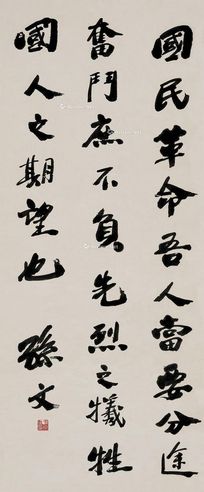 國民革命吾人當要分途
奮鬥庶不負先烈之犧牲
國人之期望也
孫文